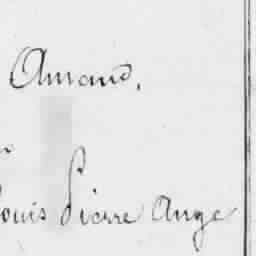 Amand,
Louis Pierre Ange